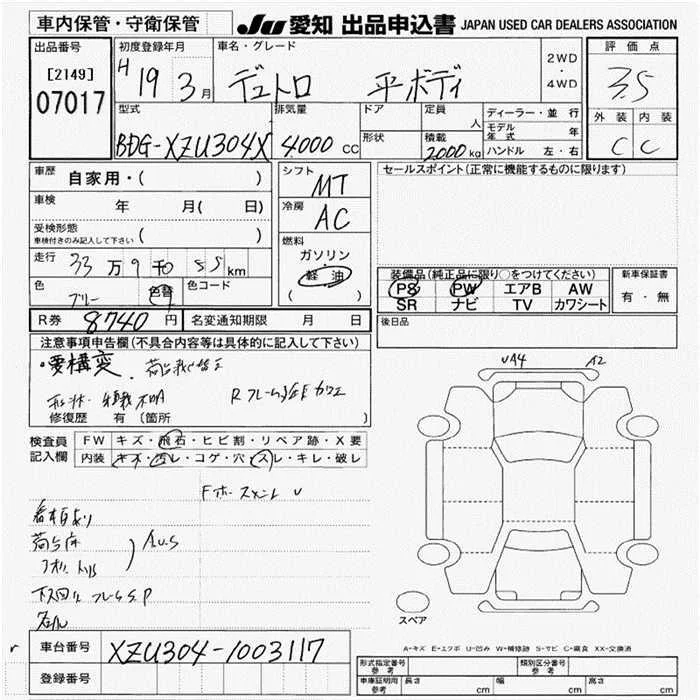 車内保管・守衛保管
JU 愛知 出品申込書 JAPAN USED CAR DEALERS ASSOCIATION
出品番号 初度登録年月 車名・グレード 2WD ・ 4WD 評価点
[2149] H 19 3月 デュトロ 平ボディ 3.5
07017
型式 排気量 ドア 定員 人 ディーラー・並行 外装 内装
モデル年式 年
BDG-XZU304X 4.000 cc 形状 積載 2000 kg ハンドル 左・右 C C
車歴 自家用・( ) シフト MT セールスポイント(正常に機能するものに限ります)
車検 年 月( 日) 冷房 AC
受検形態
車検付きのみ記入して下さい ( )
燃料 ガソリン・軽油 ( )
走行 33万9千 km
装備品(純正品に限り○をつけてください) 新車保証書
色 ブルー 色替 色コード
PS PW エアB AW 有・無
SR ナビ TV カワシート
R券 8740円 名変通知期限 月 日 後日品
注意事項申告欄(不具合内容等は具体的に記入して下さい)
・要構変
修復歴 有(箇所 )
UA4 A2
検査員記入欄 FW キズ・飛石・ヒビ割・リペア跡・X要
内装 キズ・汚レ・コゲ・穴・スレ・キレ・破レ
AUS
スペア
A・キズ E・エクボ U・凹み W・補修跡 S・サビ C・腐食 XX・交換済
r 車台番号 XZU304-1003117
登録番号
形式指定番号 参考 類別区分番号 参考
車庫証明用 参考 長さ cm 幅 cm 高さ cm